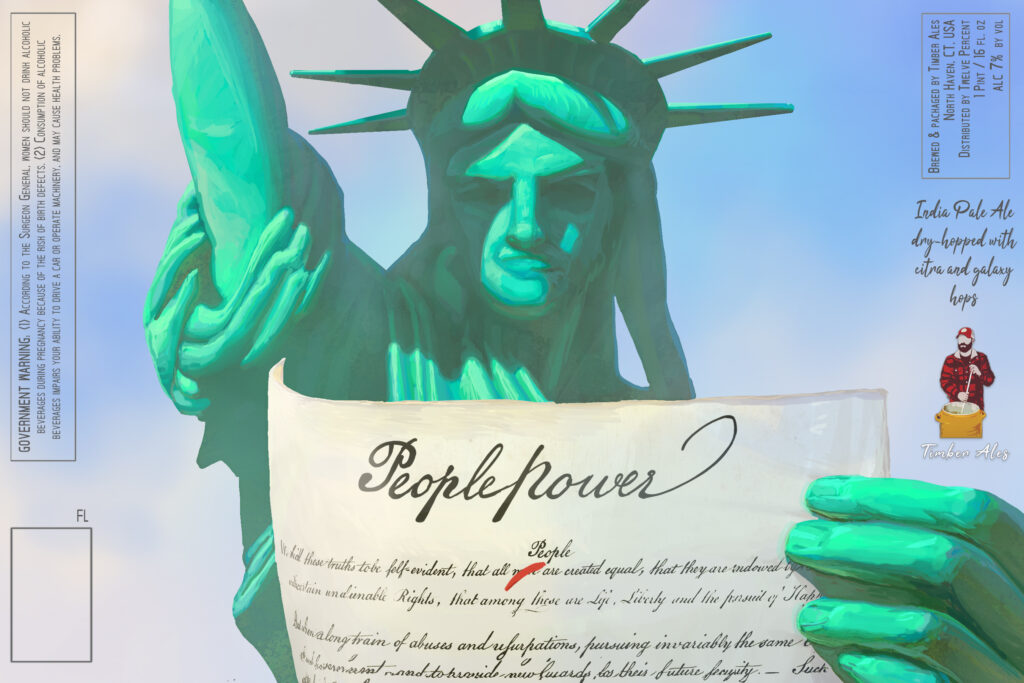 GOVERNMENT WARNING: (1) According to the Surgeon General, women should not drink alcoholic
beverages during pregnancy because of the risk of birth defects. (2) Consumption of alcoholic
beverages impairs your ability to drive a car or operate machinery, and may cause health problems.
FL
People power
People
these truths to be felf-evident, that all are created equal, that they are endowed
Rights, that among these are Life, Liberty and the pursuit of
a long train of abuses and ufurpations, pursuing invariably the same
new Guards for their future fecurity. — Such
Brewed & packaged by Timber Ales
North Haven, CT, USA
Distributed by Twelve Percent
1 Pint / 16 fl. oz
alc 7% by vol
India Pale Ale
dry-hopped with
citra and galaxy
hops
Timber Ales